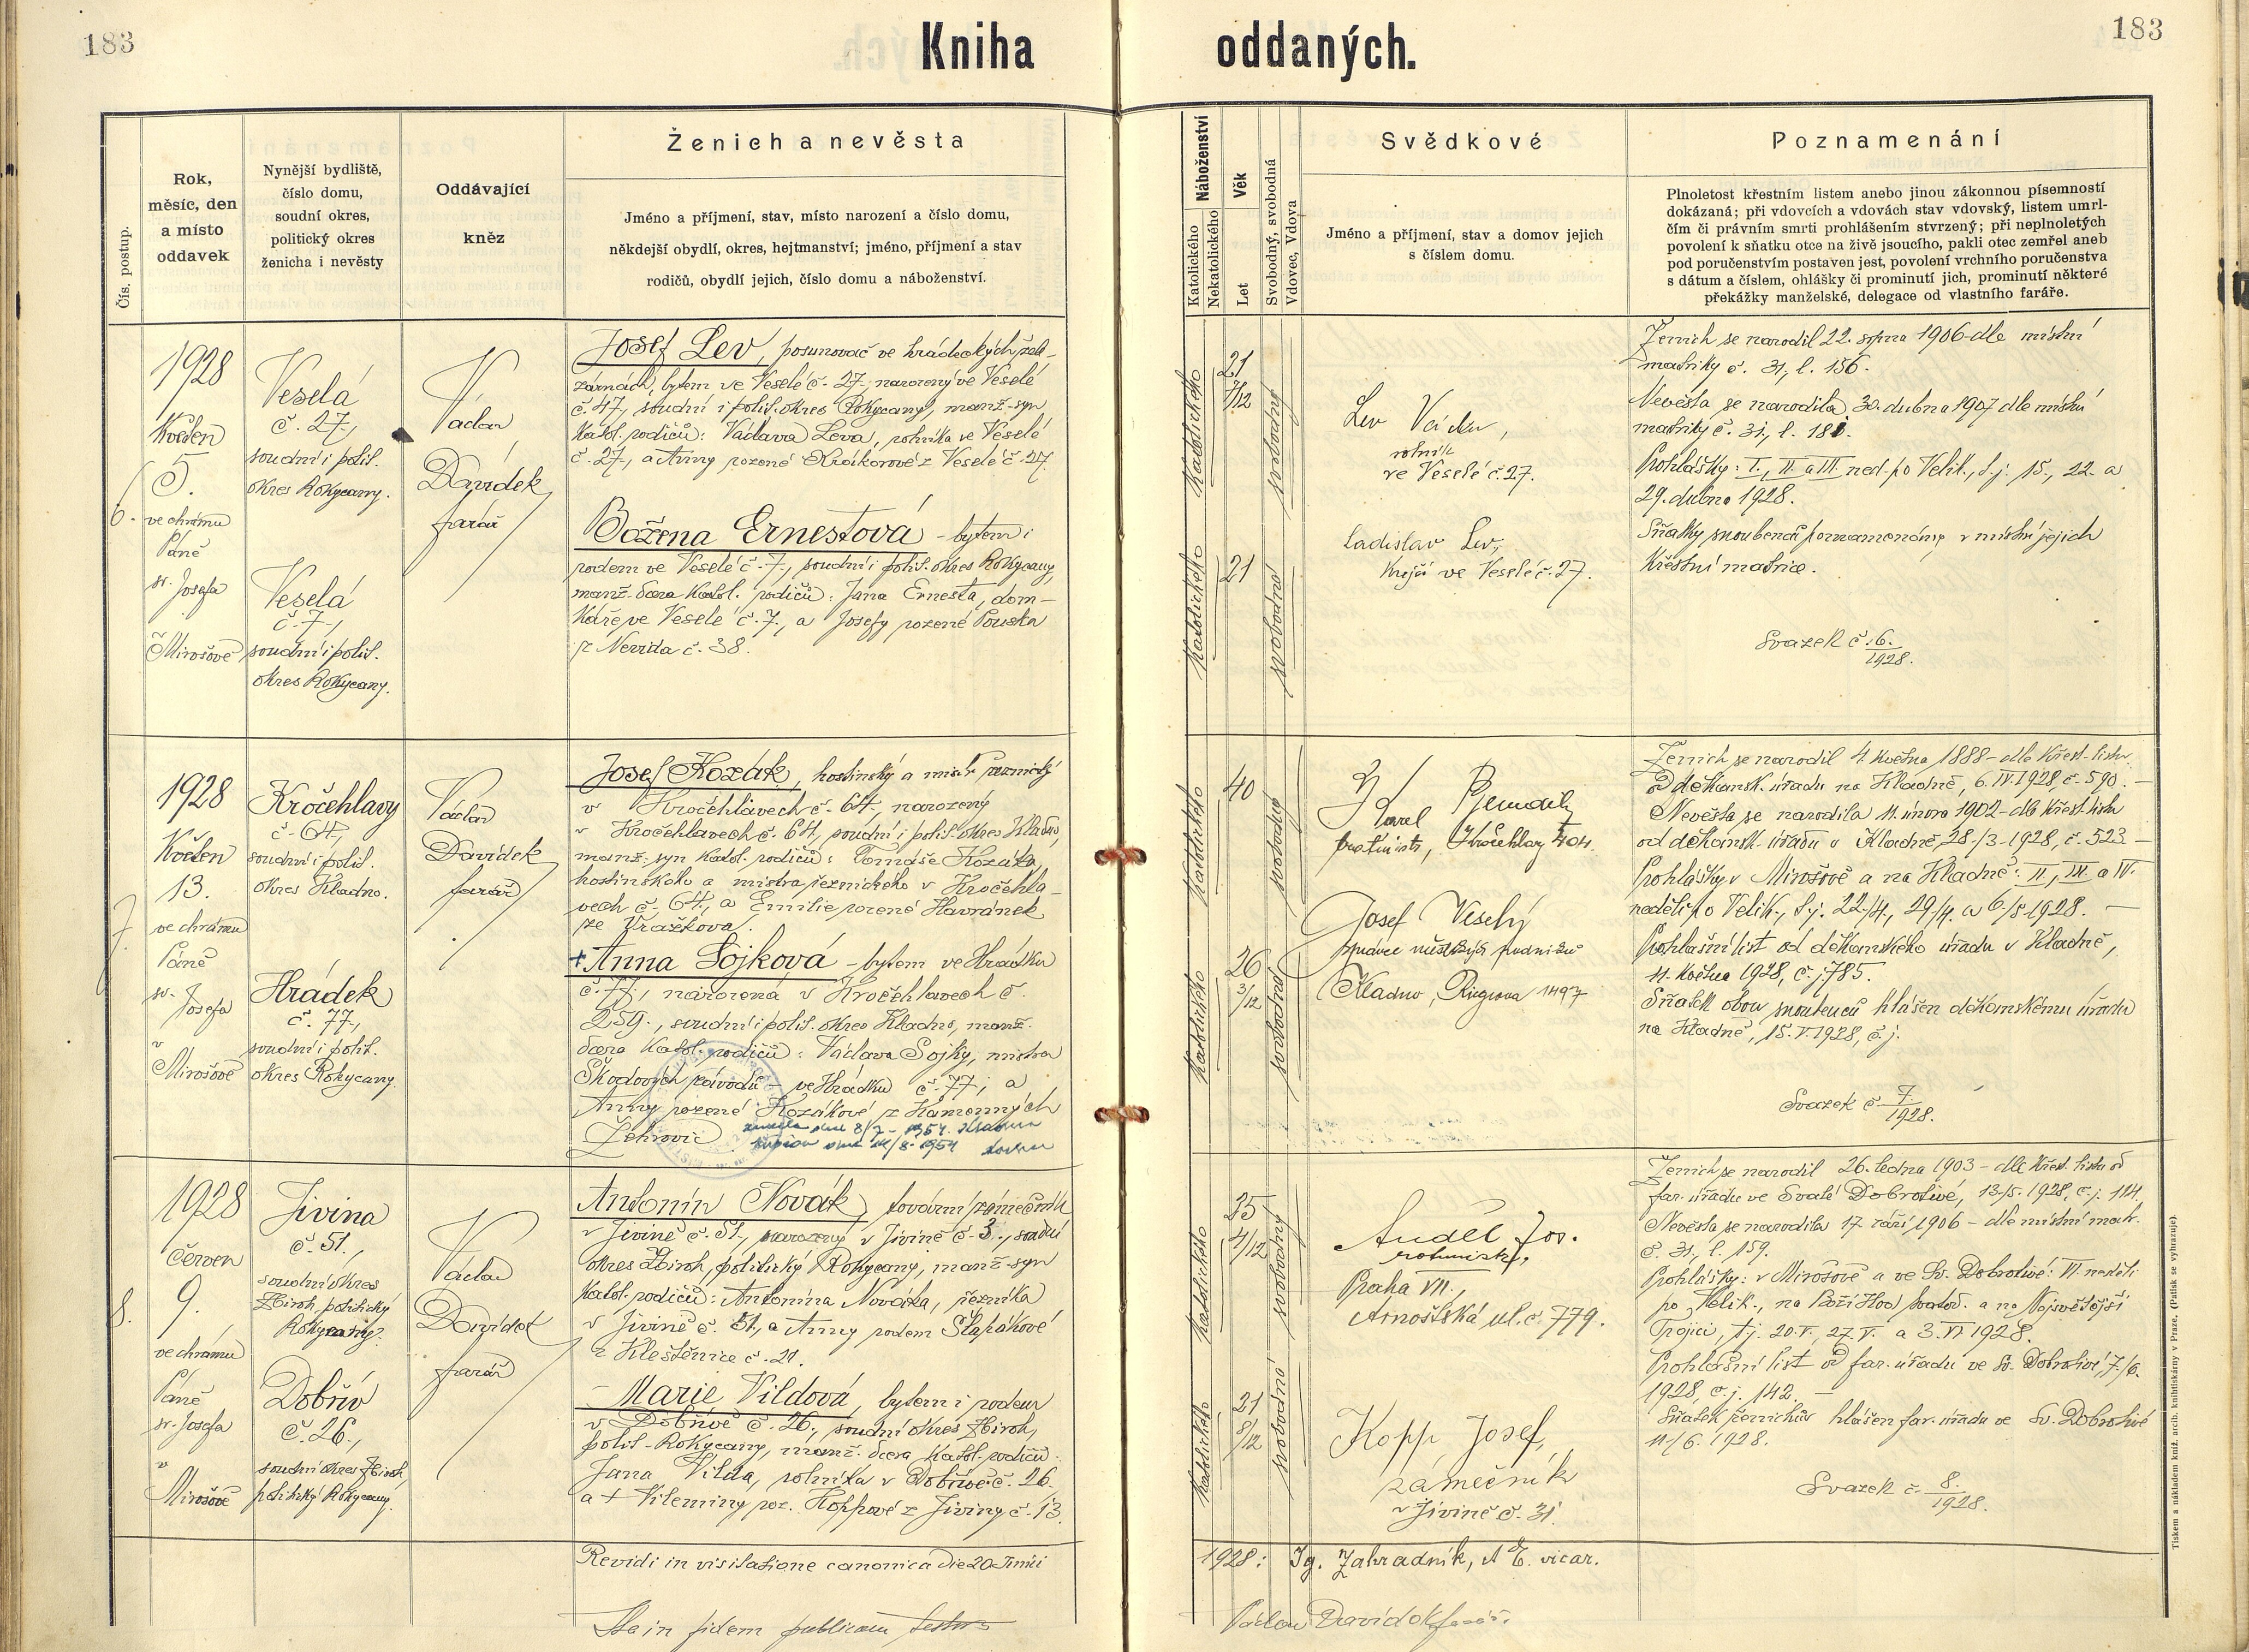 183
Kniha oddaných.
183
Čís. postup.
Rok,
měsíc, den
a místo
oddavek
Nynější bydliště,
číslo domu,
soudní okres,
politický okres
ženicha i nevěsty
Oddávající
kněz
Ženich a nevěsta
Jméno a příjmení, stav, místo narození a číslo domu,
někdejší obydlí, okres, hejtmanství; jméno, příjmení a stav
rodičů, obydlí jejich, číslo domu a náboženství.
Náboženství
Katolického
Nekatolického
Věk
Let
Svobodný, svobodná
Vdovec, Vdova
Svědkové
Jméno a příjmení, stav a domov jejich
s číslem domu.
Poznamenání
Plnoletost křestním listem anebo jinou zákonnou písemností
dokázaná; při vdovcích a vdovách stav vdovský, listem umrl-
čím či právním smrti prohlášením stvrzený; při neplnoletých
povolení k sňatku otce na živě jsoucího, pakli otec zemřel aneb
pod poručenstvím postaven jest, povolení vrchního poručenstva
s dátum a číslem, ohlášky či prominutí jich, prominutí některé
překážky manželské, delegace od vlastního faráře.
6.
1928
Květen
5.
ve chrámu
Páně
sv. Josefa
v Mirošově
Veselá
č. 27,
soudní i polit.
okres Rokycany.
Veselá
č. 7,
soudní i polit.
okres Rokycany.
Václav
Davídek
farář
Josef Lev, posunovač ve hrádeckých žele-
zárnách, bytem ve Veselé č. 27, narozený ve Veselé
č. 47, soudní i polit. okres Rokycany, manž. syn
katol. rodičů: Václava Leva, rolníka ve Veselé
č. 27, a Anny rozené Krákorové z Veselé č. 27.
Božena Ernestová – bytem i
rodem ve Veselé č. 7, soudní i polit. okres Rokycany,
manž. dcera katol. rodičů: Jana Ernesta, dom-
káře ve Veselé č. 7, a Josefy rozené Pouska
z Nevida č. 38.
katolického
21
7/12
svobodný
katolického
21
svobodná
Lev Václav,
rolník
ve Veselé č. 27.
Ladislav Lev,
krejčí ve Veselé č. 27.
Ženich se narodil 22. srpna 1906 dle místní
matriky č. 31, l. 156.
Nevěsta se narodila 30. dubna 1907 dle místní
matriky č. 31, l. 181.
Prohlášky: I., II. a III. ned. po Velik., t. j. 15., 22. a
29. dubna 1928.
Sňatky snoubenců poznamenány v místní jejich
křestní matrice.
Svazek č. 6./1928.
7.
1928
Květen
13.
ve chrámu
Páně
sv. Josefa
v
Mirošově
Kročehlavy
č. 64,
soudní i polit.
okres Kladno.
Hrádek
č. 77,
soudní i polit.
okres Rokycany.
Václav
Davídek
farář
Josef Kozák, hostinský a mistr řeznický
v Kročehlavech č. 64, narozený
v Kročehlavech č. 64, soudní i polit. okres Kladno,
manž. syn katol. rodičů: Tomáše Kozáka,
hostinského a mistra řeznického v Kročehla-
vech č. 64, a Emilie rozené Havránek
ze Vražkova.
+ Anna Sojková – bytem ve Hrádku
č. 77, narozená v Kročehlavech č.
259., soudní i polit. okres Kladno, manž.
dcera katol. rodičů: Václava Sojky, mistra
Škodových závodů – ve Hrádku č. 77, a
Anny rozené Kozákové z Kamenných
Žehrovic
zemřela dne 8/7 - 1954 Kladno
katolického
40
svobodný
katolického
26
3/12
svobodná
Karel
Kročehlavy 404.
Josef Veselý
správce městských podniků
Kladno, Riegrova 1497
Ženich se narodil 4. května 1888 – dle křest. listu
od děkansk. úřadu na Kladně, 6. IV. 1928, č. 590. –
Nevěsta se narodila 11. února 1902 – dle křest. listu
od děkansk. úřadu v Kladně, 28/3 1928, č. 523 –
Prohlášky v Mirošově a na Kladně: II., III. a IV.
neděli po Velik., t. j. 22/4, 29/4. a 6/5 1928. –
Prohlašní list od děkanského úřadu v Kladně,
11. května 1928, č. j. 785.
Sňatek obou snoubenců hlášen děkanskému úřadu
na Kladně, 15. V. 1928, č. j.
Svazek č. 7./1928.
8.
1928
Červen
9.
ve chrámu
Páně
sv. Josefa
v
Mirošově
Jivina
č. 51.,
soudní okres
Zbiroh, politický
Rokycany.
Dobřív
č. 26.,
soudní okres Zbiroh,
politický Rokycany.
Václav
Davídek
farář
Antonín Novák, tovární zámečník
v Jivině č. 51., narozený v Jivině č. 3., soudní
okres Zbiroh, politický Rokycany, manž. syn
katol. rodičů: Antonína Nováka, řezníka
v Jivině č. 51, a Anny rodem Šlapákové
z Kleštěnice č. 21.
Marie Vildová, bytem i rodem
v Dobřívě č. 26., soudní okres Zbiroh,
polit. Rokycany, manž. dcera katol. rodičů:
Jana Vilda, rolníka v Dobřívě č. 26.
a + Vileminy roz. Koppové z Jiviny č. 13.
katolického
25
4/12
svobodný
katolického
21
8/12
svobodná
Anděl Jos.
rotmistr,
Praha VII.,
Arnoštská ul. č. 779.
Kopp Josef,
zámečník
v Jivině č. 31.
Ženich se narodil 26. ledna 1903 – dle křest. listu od
far. úřadu ve Svaté Dobrotivé, 13./5. 1928, č. j. 114.
Nevěsta se narodila 17. září 1906 – dle místní matr.
č. 31, l. 159.
Prohlášky: v Mirošově a ve Sv. Dobrotivé: VI. neděli
po Velik., na Boží Hod Svatod. a na Nejsvětější
Trojici, t. j. 20. V., 27. V. a 3. VI. 1928.
Prohlašní list od far. úřadu ve Sv. Dobrotivé, 7./6.
1928, č. j. 142. –
Sňatek ženichův hlášen far. úřadu ve Sv. Dobrotivé
11/6. 1928.
Svazek č. 8./1928.
Revidi in visitatione canonica die 20 Junii 1928: Ig. Zahradník, A. E. vicar.
Ita in fidem publicam testor Václav Davídek farář.
Tiskem a nákladem kníž. arcib. knihtiskárny v Praze, (Patisk se vyhrazuje).